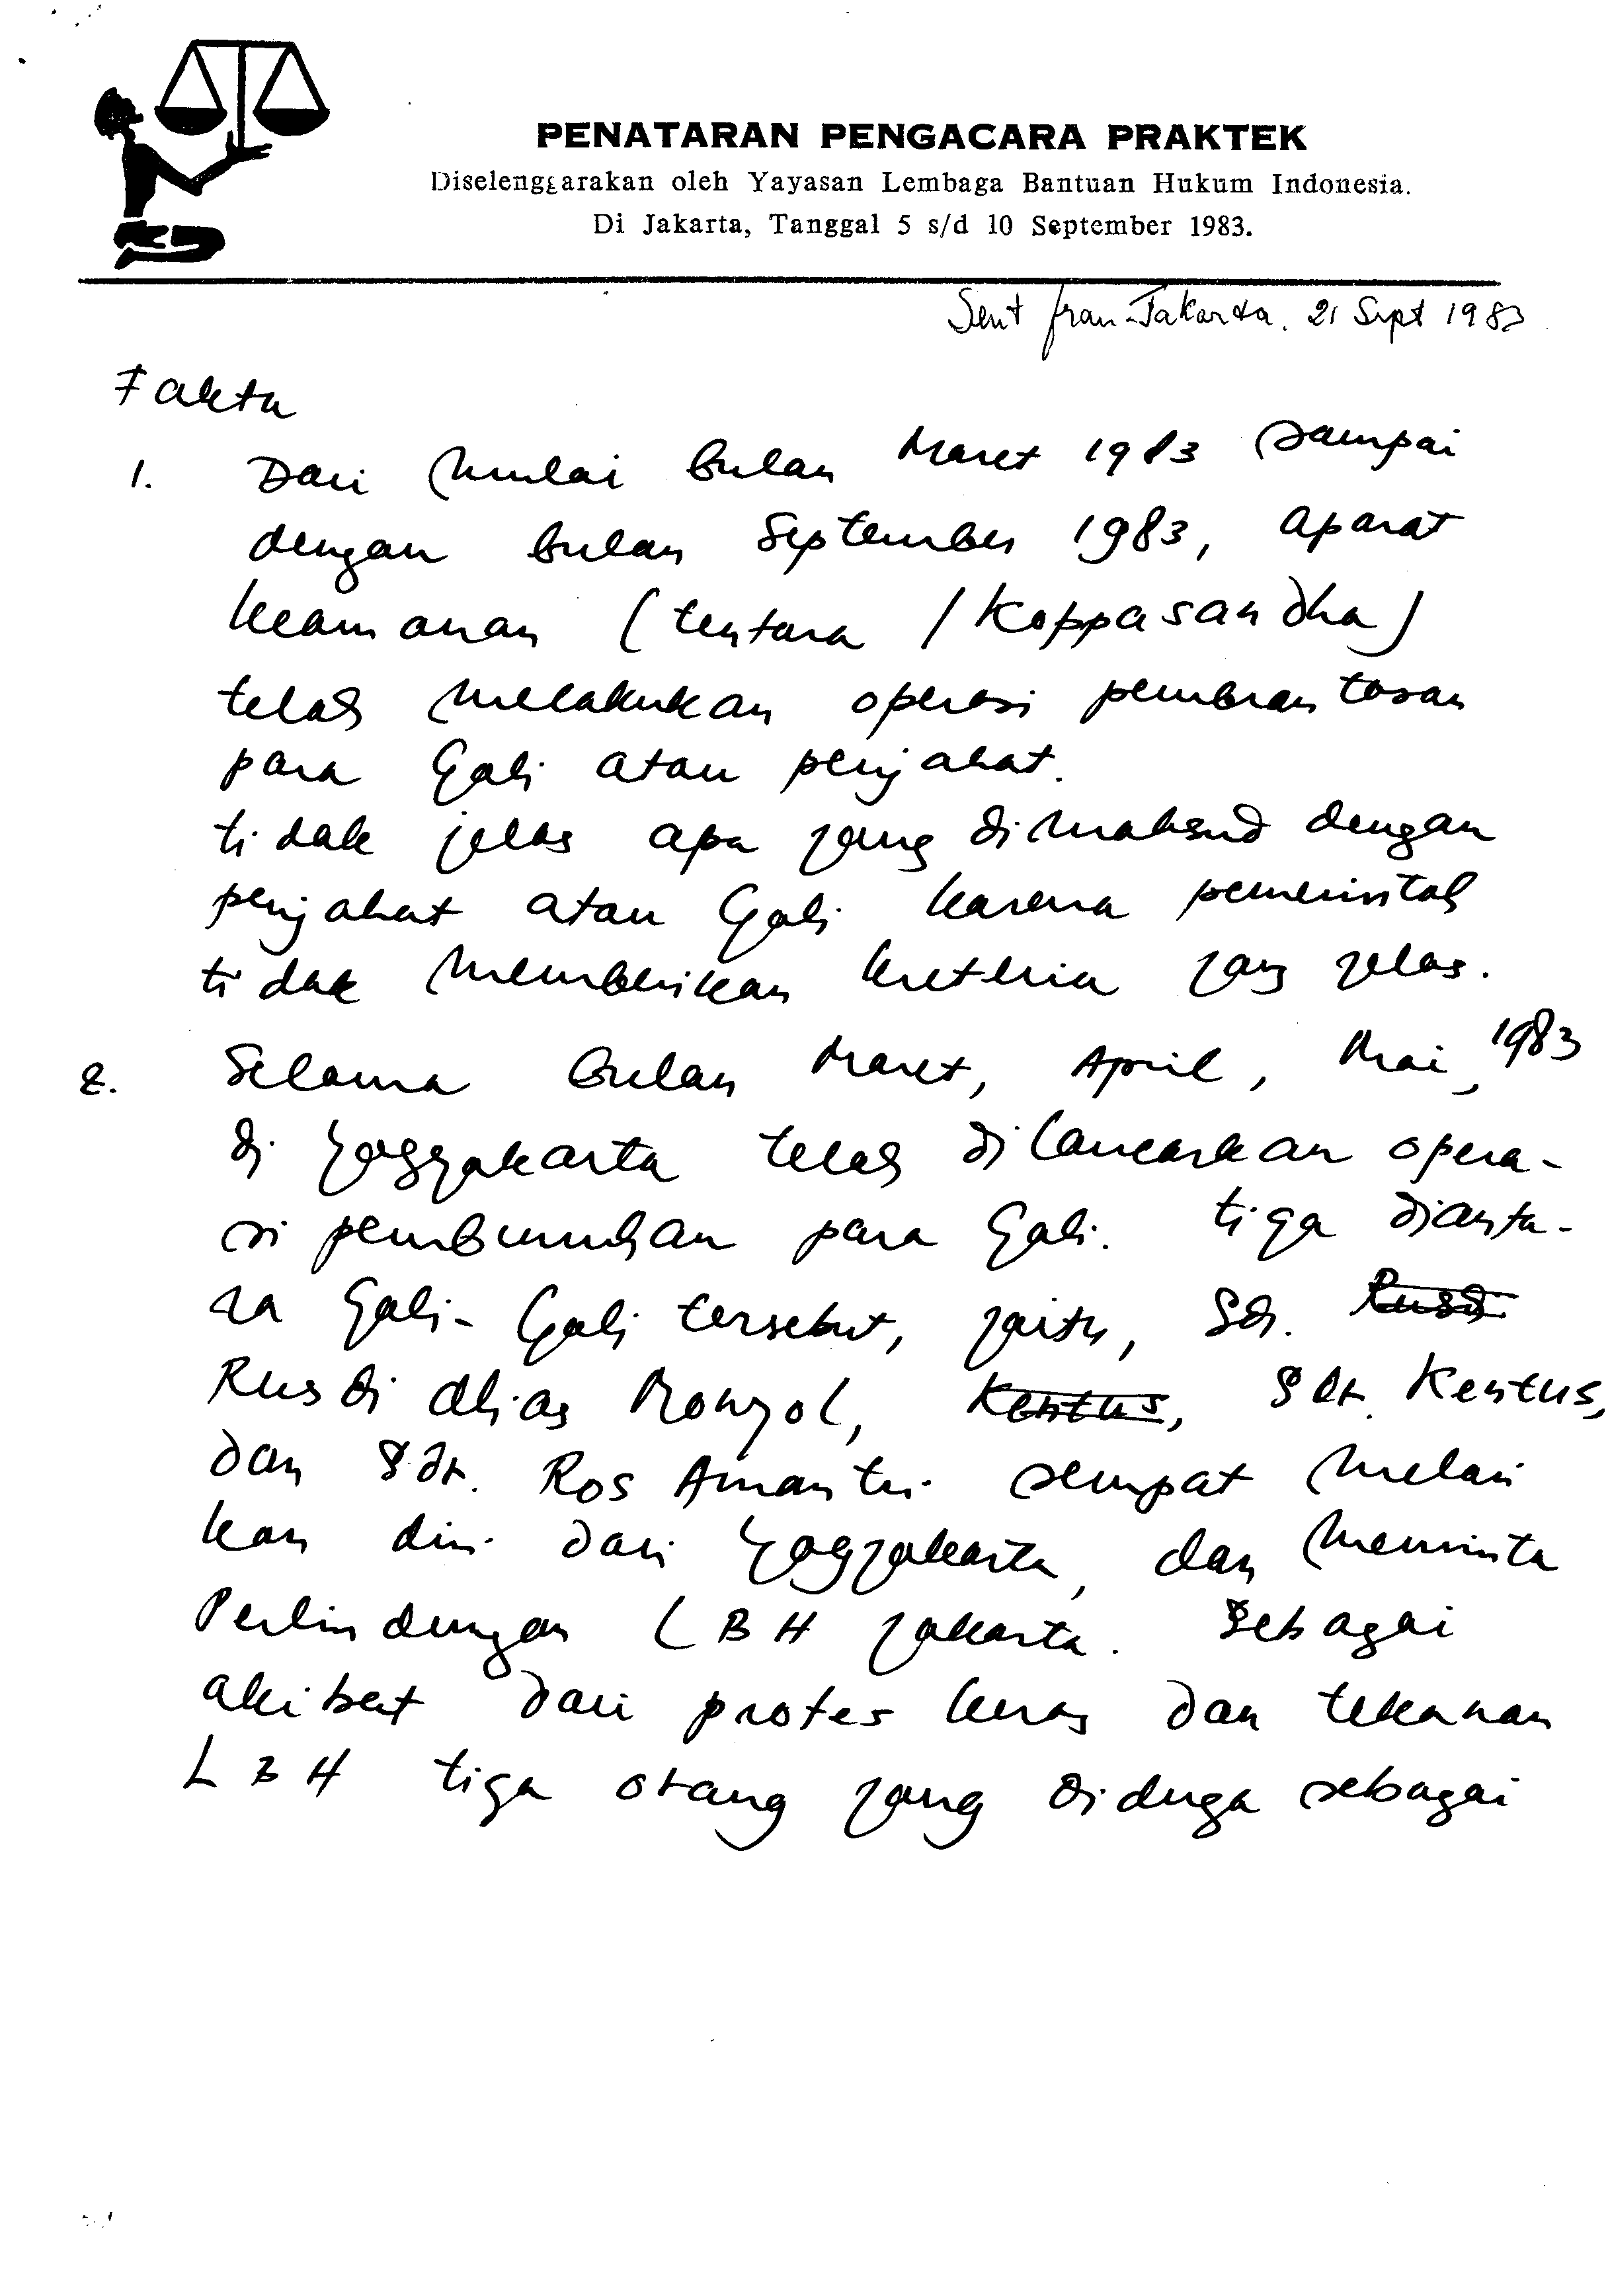 PENATARAN PENGACARA PRAKTEK
Diselenggarakan oleh Yayasan Lembaga Bantuan Hukum Indonesia.
Di Jakarta, Tanggal 5 s/d 10 September 1983.
Sent from Jakarta. 21 Sept 1983
Fakta
1. Dari mulai bulan Maret 1983 sampai
dengan bulan September 1983, aparat
keamanan (tentara / Koppasandha)
telah melakukan operasi pembrantasan
para Gali atau penjahat.
tidak jelas apa yang dimaksud dengan
penjahat atau Gali karena pemerintah
tidak memberikan kreteria yang jelas.
2. Selama bulan Maret, April, Mai, 1983
di Yogyakarta telah dilancarkan opera-
si pembunuhan para Gali. tiga dianta-
ra Gali-Gali tersebut, yaitu, Sdr. Rusdi
Rusdi alias Mongol, Kentus, Sdr. Kentus,
dan Sdr. Ros Amantri sempat melari
kan diri dari Yogyakarta, dan meminta
Perlindungan LBH Jakarta. Sebagai
akibat dari protes keras dan tekanan
LBH tiga orang yang diduga sebagai